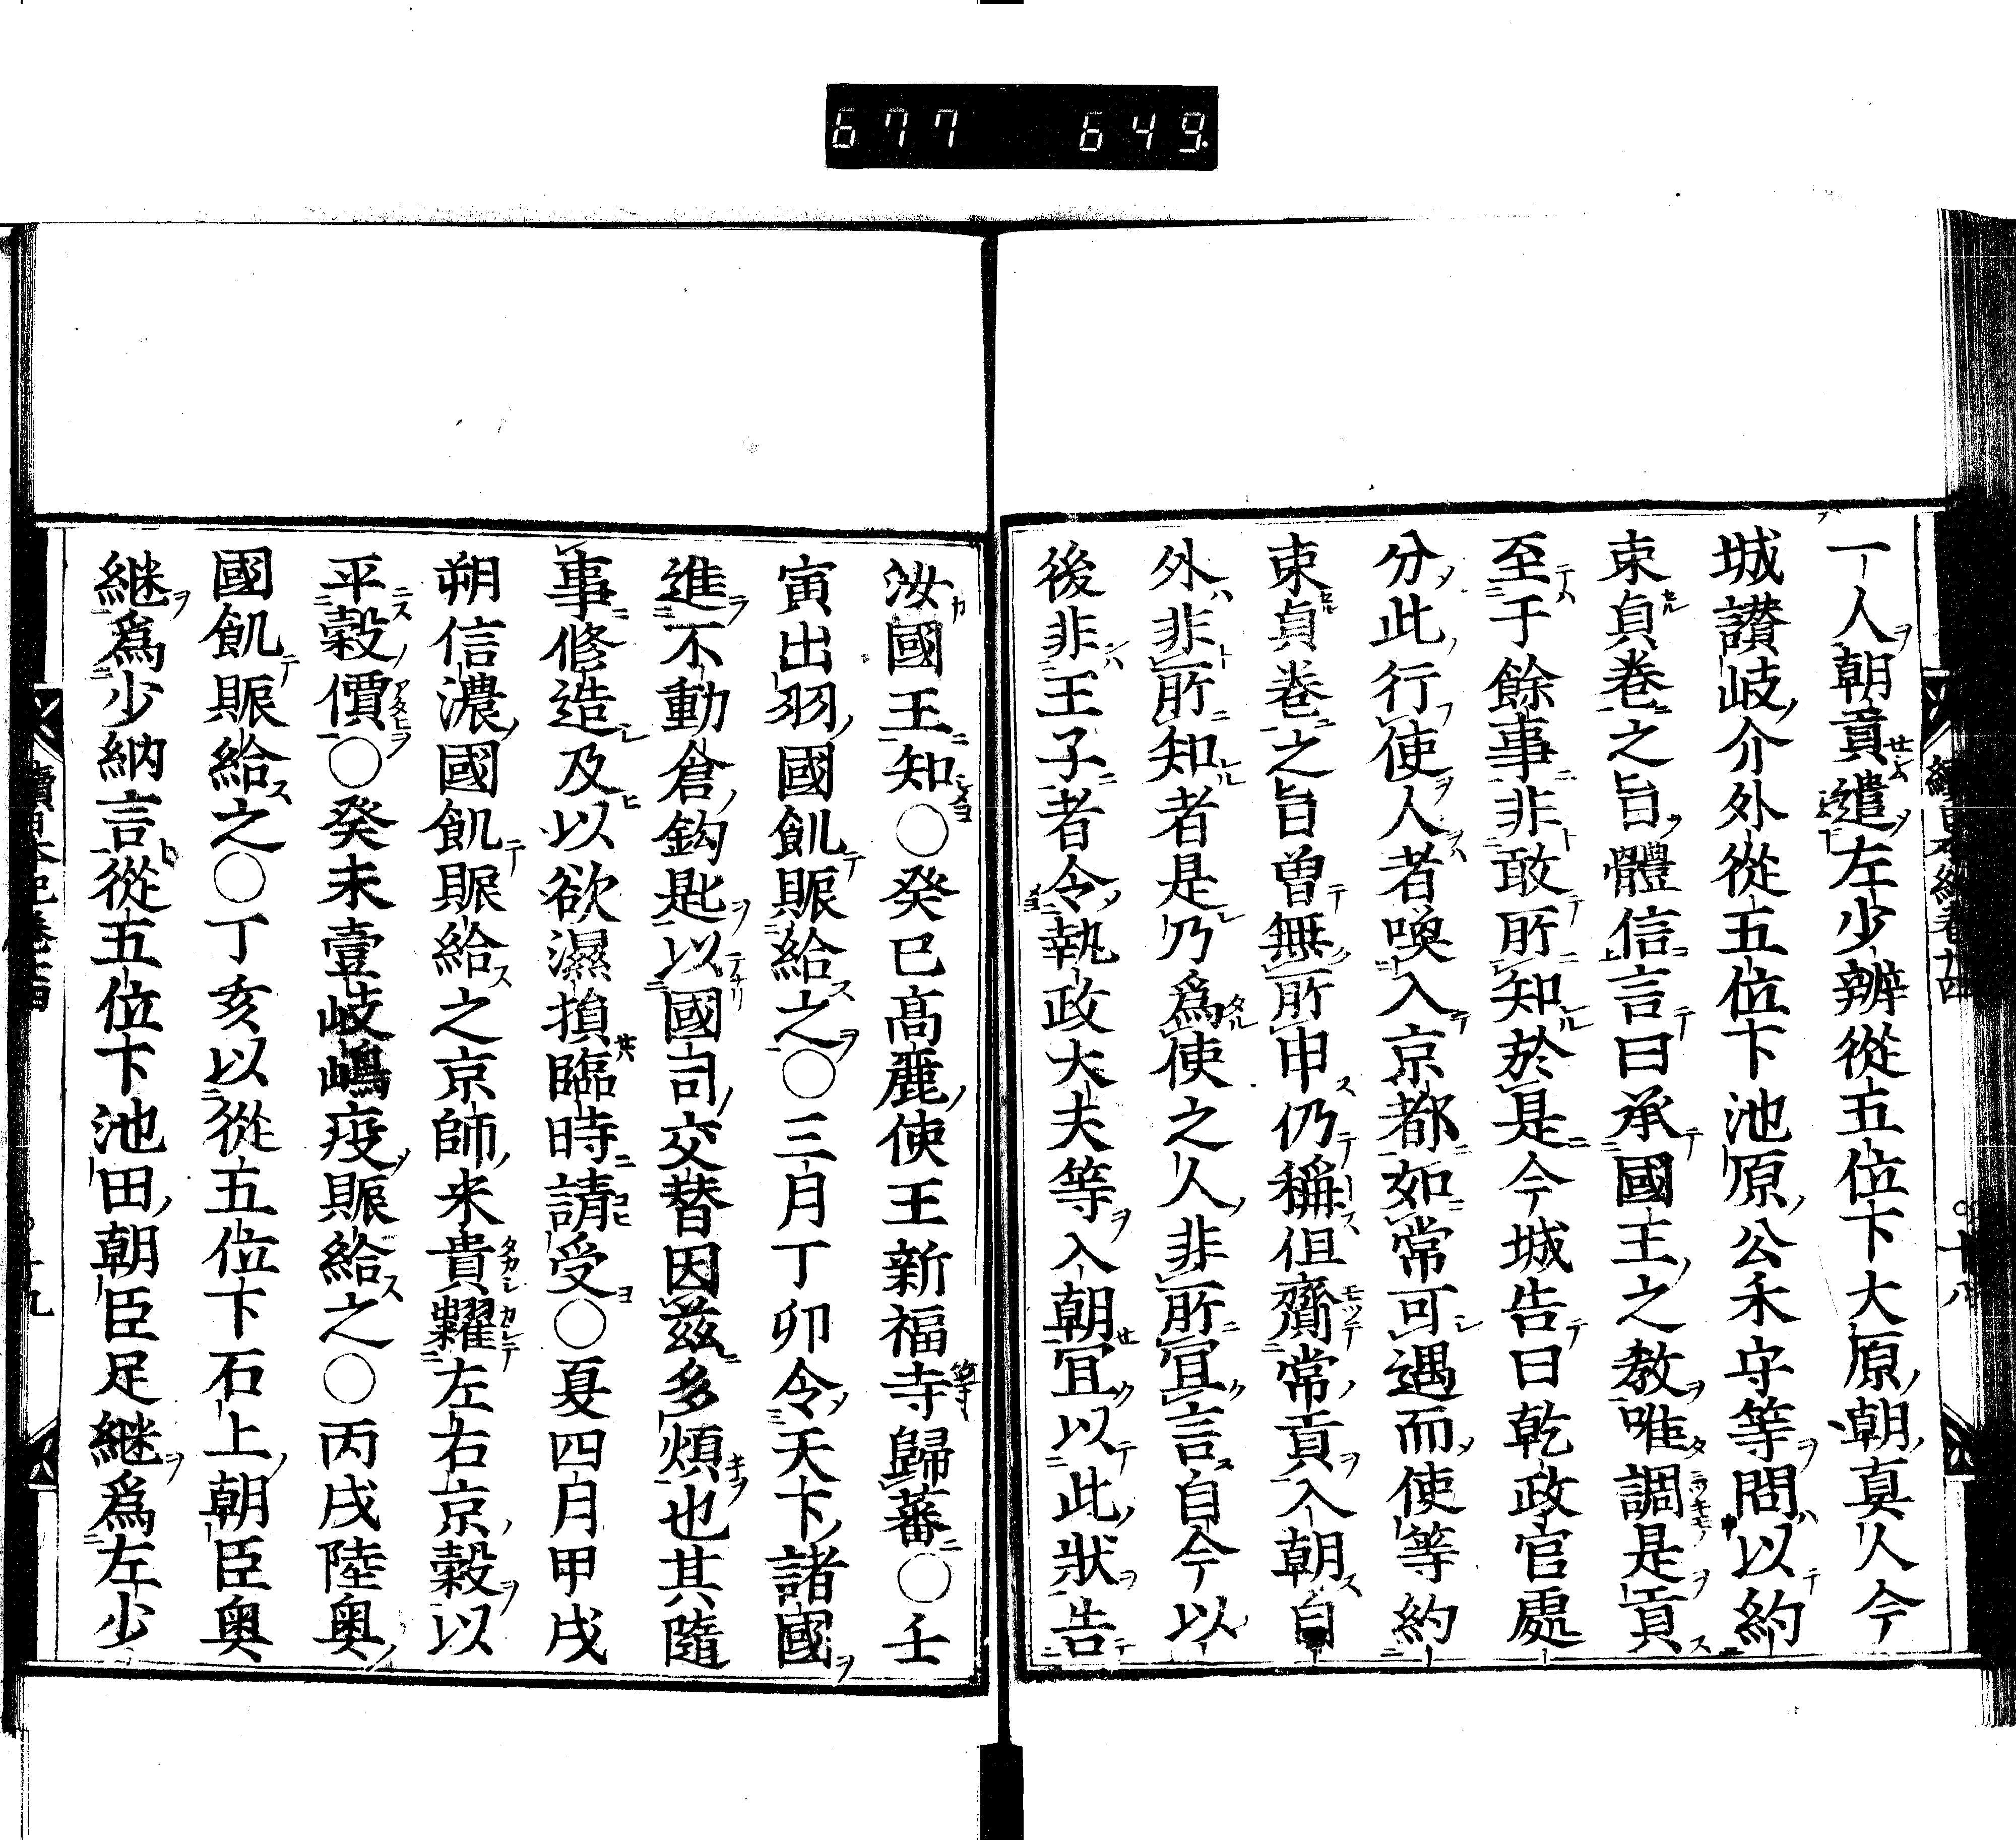 677 649
一人朝貢遣左少辨從五位下大原朝真人今
城讃岐介外從五位下池原公禾守等問以約
束貞卷之旨體信言曰承國王之教唯調是貢
至于餘事非敢所知於是今城告曰乾政官處
分此行使人者喚入京都如常可遇而使等約
束貞卷之旨曽無所申仍稱但齎常貢入朝自
外非所知者是乃爲使之人非所冝言自今以
後非王子者令執政大夫等入朝冝以此狀告
汝國王知○癸巳髙麗使王新福等歸蕃○壬
寅出羽國飢賑給之○三月丁卯令天下諸國
進不動倉鈎匙以國司交替因茲多煩也其隨
事修造及以欲濕損臨時請受○夏四月甲戌
朔信濃國飢賑給之京師米貴糶左右京穀以
平穀價○癸未壹岐嶋疫賑給之○丙戌陸奥
國飢賑給之○丁亥以從五位下石上朝臣奥
継爲少納言從五位下池田朝臣足継爲左少